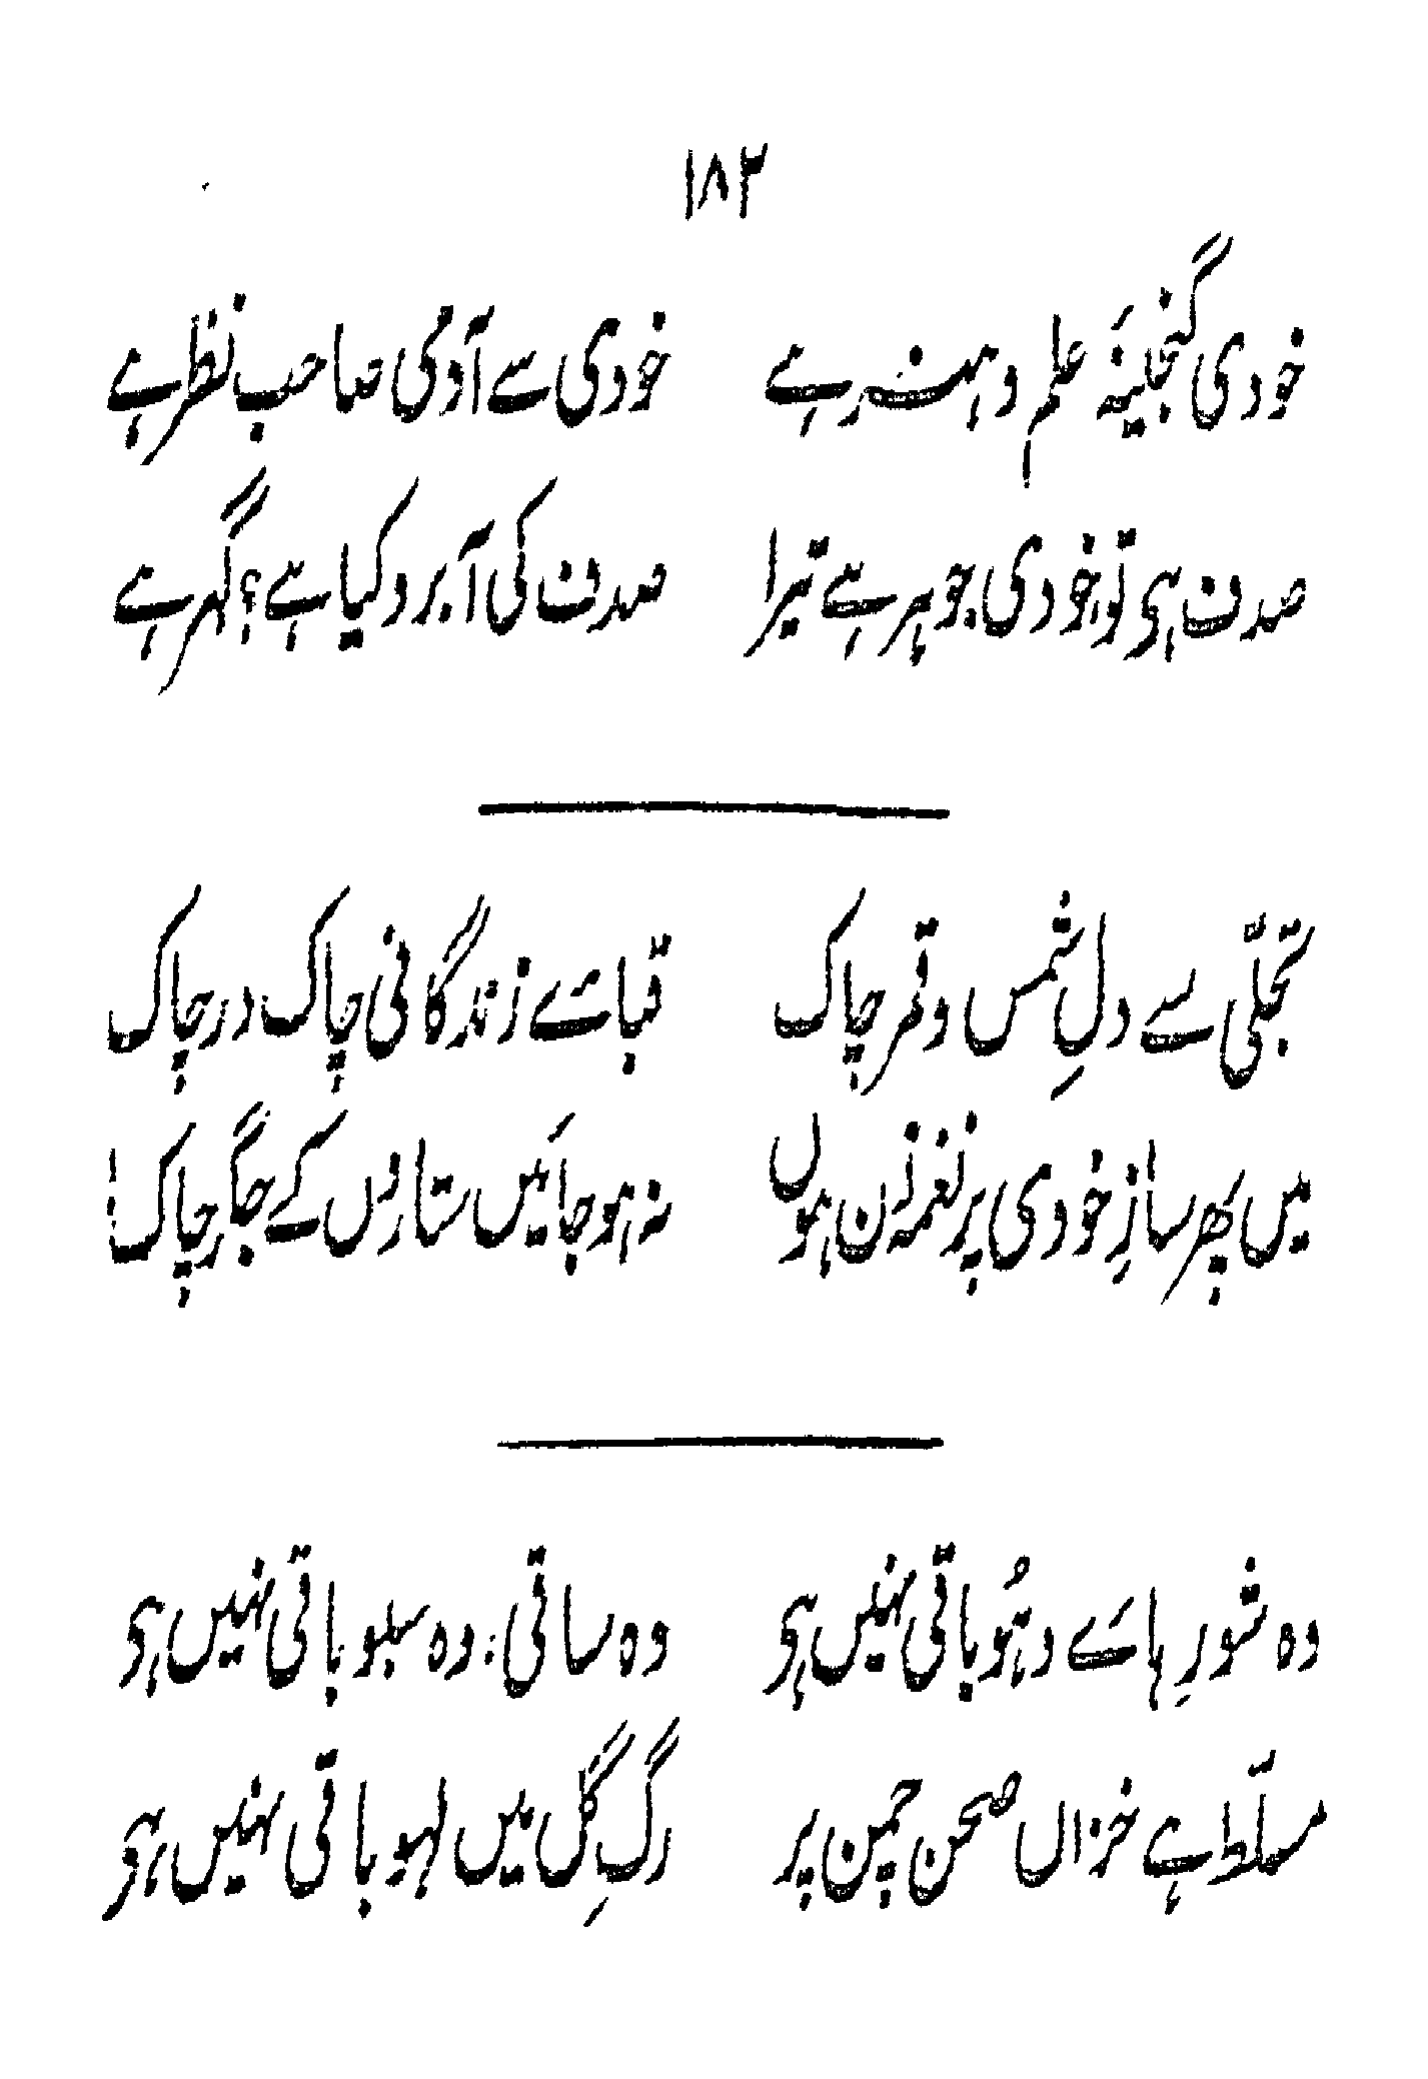 ۱۸۳
خودی گنجینۂ علم و ہنر ہے خودی سے آدمی صاحب نظر ہے
صدف ہی تو، خودی جوہر ہے تیرا صدف کی آبرو کیا ہے؟ گہر ہے
تجلّی سے دلِ شمس و قمر چاک قبائے زندگانی چاک در چاک
میں پھر سازِ خودی پر نغمہ زن ہوں نہ ہو جائیں ستاروں کے جگر چاک!
وہ شورِ ہائے و ہُو باقی نہیں ہی وہ ساقی، وہ سبو باقی نہیں ہی
مسلّط ہے خزاں صحن چمن پر رگِ گل میں لہو باقی نہیں ہی